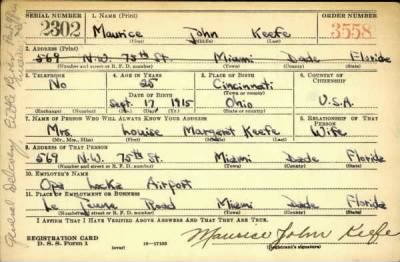 SERIAL NUMBER 1. NAME (Print) ORDER NUMBER
2302 Maurice John Keefe 3558
(First) (Middle) (Last)
2. ADDRESS (Print)
569 N.W. 75th St. Miami Dade Florida
(Number and street or R. F. D. number) (Town) (County) (State)
3. TELEPHONE 4. AGE IN YEARS 5. PLACE OF BIRTH 6. COUNTRY OF CITIZENSHIP
No 25 Cincinnati
DATE OF BIRTH (Town or county)
Sept. 17 1915 Ohio U.S.A.
(Exchange) (Number) (Mo.) (Day) (Yr.) (State or country)
7. NAME OF PERSON WHO WILL ALWAYS KNOW YOUR ADDRESS 8. RELATIONSHIP OF THAT PERSON
Mrs. Louise Margaret Keefe Wife
(Mr., Mrs., Miss) (First) (Middle) (Last)
9. ADDRESS OF THAT PERSON
569 N.W. 75th St. Miami Dade Florida
(Number and street or R. F. D. number) (Town) (County) (State)
10. EMPLOYER'S NAME
Opa Locka Airport
11. PLACE OF EMPLOYMENT OR BUSINESS
Le Jeune Road Miami Dade Florida
(Number and street or R. F. D. number) (Town) (County) (State)
I AFFIRM THAT I HAVE VERIFIED ABOVE ANSWERS AND THAT THEY ARE TRUE.
REGISTRATION CARD
D. S. S. Form 1 (over) 16—17105 Maurice John Keefe
(Registrant's signature)
General Delivery